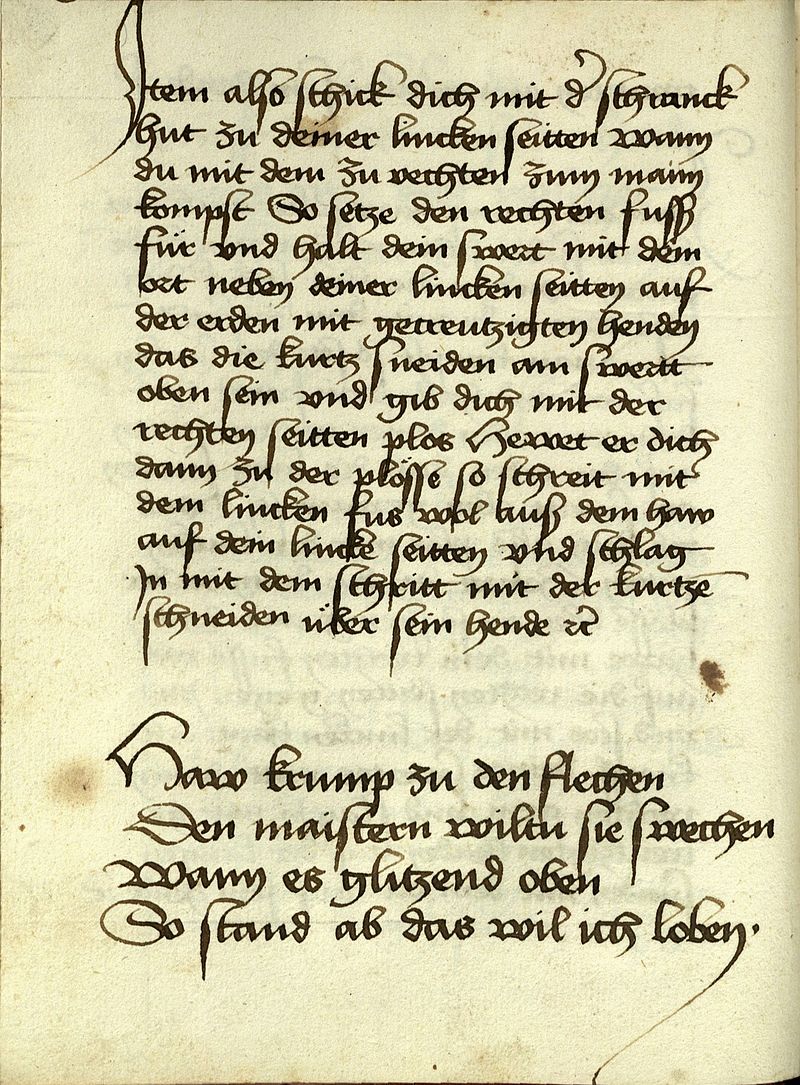 Item also schick dich mit d' schranck
hut zu deiner lincken seitten wann
du mit dem zu vechten zum mann
kompst So setze den rechten fuſß
für vnd halt dein swert mit dem
ort neben deiner lincken seitten auf
der erden mit gecreutzigten henden
das die kurtz sneiden am swertt
oben sein vnd gib dich mit der
rechten seitten plos Hewet er dich
dann zu der plösse so schreit mit
dem lincken fus wol auß dem haw
auf dein linckē seitten vnd schlag
In mit dem schritt mit der kurtzē
schneiden über sein hende ꝛc̄
Haw krump zu den flechen
Den maistern wiltu sie swechen
Wann es glitzend oben
So stand ab das wil ich loben.